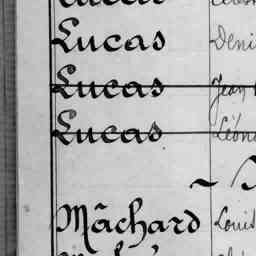 Lucas Deni
Lucas Jean
Lucas Léon
Mâchard Louis